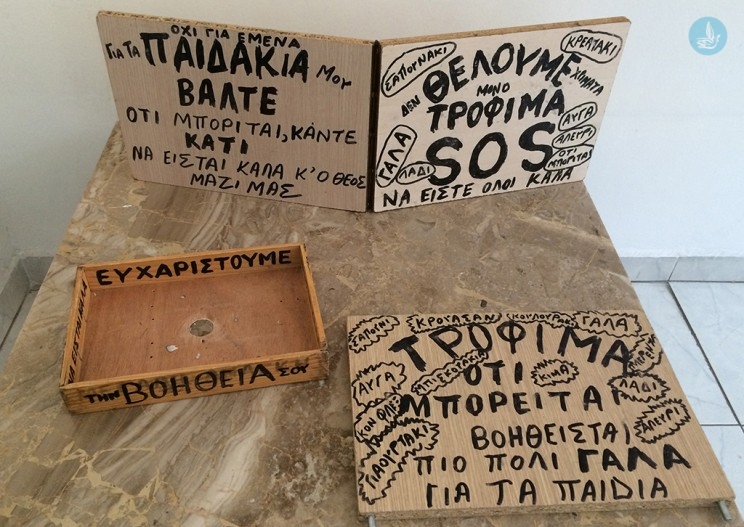 ΟΧΙ ΓΙΑ ΕΜΕΝΑ
ΓΙΑ ΤΑ ΠΑΙΔΑΚΙΑ ΜΟΥ
ΒΑΛΤΕ
ΟΤΙ ΜΠΟΡΙΤΑΙ, ΚΑΝΤΕ
ΚΑΤΙ
ΝΑ ΕΙΣΤΑΙ ΚΑΛΑ Κ'Ο ΘΕΟΣ
ΜΑΖΙ ΜΑΣ
ΣΑΠΟΥΝΑΚΙ
ΚΡΕΑΤΑΚΙ
ΘΕΛΟΥΜΕ
ΔΕΝ
ΜΟΝΟ
ΧΡΜΑΤΑ
ΤΡΟΦΙΜΑ
ΑΥΓΑ
ΑΛΕΥΡΙ
ΟΤΙ
ΜΠΟΡΙΤΑΣ
ΓΑΛΑ
ΛΑΔΙ
SOS
ΝΑ ΕΙΣΤΕ ΟΛΟΙ ΚΑΛΑ
ΕΥΧΑΡΙΣΤΟΥΜΕ
ΤΗΝ ΒΟΗΘΕΙΑ ΣΟΥ
ΣΑΠΟΥΝΙ
ΚΡΟΥΑΣΑΝ
ΚΟΥΛΟΥΡΑΚΙ
ΓΑΛΑ
ΤΡΟΦΙΜΑ
ΑΥΓΑ
ΜΠΙΣΚΟΤΑΚΙΑ
ΟΤΙ
ΚΙΜΑ
ΛΑΔΙ
ΚΟΝ ΦΛΕΞ
ΜΠΟΡΕΙΤΑΙ
ΑΛΕΥΡΙ
ΓΙΑΟΥΡΤΑΚΙ
ΒΟΗΘΕΙΣΤΑΙ
ΠΙΟ ΠΟΛΙ ΓΑΛΑ
ΓΙΑ ΤΑ ΠΑΙΔΙΑ